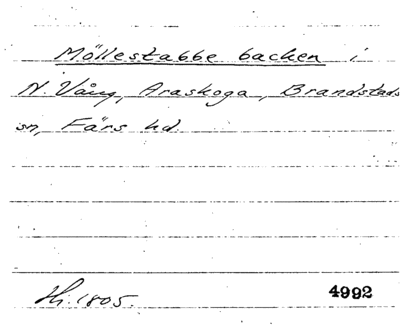 Möllestabbe backen i
N. Vång, Araskoga, Brandstads
sn, Färs hd.
Hs. 1805. 4992